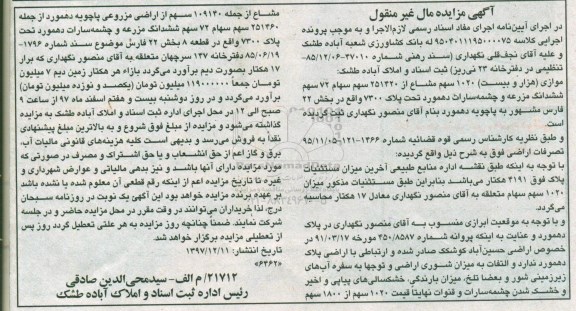 آگهی مزایده مال غیر منقول
در اجرای آیین‌نامه اجرای مفاد اسناد رسمی لازم‌الاجرا و به موجب پرونده
اجرایی کلاسه ۹۵۰۴۰۱۱۱۹۵۰۰۰۰۷۵ له بانک کشاورزی شعبه آباده طشک
و علیه آقای نجف‌قلی نگهداری (سند رهنی شماره ۳۷۰۱۰-۸۵/۱۲/۰۶
تنظیمی در دفترخانه ۲۳ نی‌ریز) ثبت اسناد و املاک آباده طشک:
موازی (هزار و بیست) ۱۰۲۰ سهم مشاع از ۲۵۱۳۲۰ سهم سهام ۷۲ سهم
ششدانگ مزرعه و چشمه‌سارات دهمورد تحت پلاک ۷۳۰۰ واقع در بخش ۲۲
فارس مشهور به پاجویه دهمورد بنام آقای منصور نگهداری ثبت گردیده
است.
و طبق نظریه کارشناس رسمی قوه قضائیه شماره ۱۳۶۶-۱۲۱-۹۵/۱۱/۰۵
تصرفات اراضی فوق به شرح ذیل واقع گردیده:
با توجه به اینکه طبق نقشه اداره منابع طبیعی آخرین میزان مستثنیات
پلاک فوق ۴۱۹۱ هکتار می‌باشد بنابراین طبق مستثنیات مذکور میزان
۱۰۲۰ سهم سهام متعلق به آقای منصور نگهداری معادل ۱۷ هکتار محاسبه
می‌گردد.
و با توجه به موقعیت ابرازی منسوب به آقای منصور نگهداری در پلاک
دهمورد و عنایت به اینکه پروانه شماره ۳۵۰/۸۵۸۷ مورخه ۹۱/۰۳/۱۷ در
خصوص اراضی حسین‌آباد کوشکک صادر شده و ارتباطی با اراضی پلاک
دهمورد ندارد و التفات به میزان شوری اراضی و توجها به سفره آب‌های
زیرزمینی شور و بعضا تلخ، میزان بارندگی، خشکسالی‌های پیاپی و اخیر
و خشک شدن چشمه‌سارات و قنوات نهایتا قیمت ۱۰۲۰ سهم از ۱۸۰۰ سهم
مشاع از جمله ۱۰۹۱۴۰ سهم از اراضی مزروعی پاجویه دهمورد از جمله
۲۵۱۳۶۰ سهم سهام ۷۲ سهم ششدانگ مزرعه و چشمه‌سارات دهمورد تحت
پلاک ۷۳۰۰ واقع در قطعه ۸ بخش ۲۲ فارس موضوع سند شماره ۱۷۹۶-
۸۵/۰۶/۱۹ دفترخانه ۱۳۷ سرجهان متعلقه به آقای منصور نگهداری که برابر
۱۷ هکتار بصورت دیم برآورد می‌گردد بازاء هر هکتار زمین دیم ۷ میلیون
تومان جمعاً ۱۱۹۰۰۰۰۰۰ تومان (یکصد و نوزده میلیون تومان)
برآورد می‌گردد و در روز دوشنبه بیست و هفتم اسفند ماه ۹۷ از ساعت ۹
صبح الی ۱۲ در محل اجرای اداره ثبت اسناد و املاک آباده طشک به مزایده
گذاشته می‌شود و مزایده از مبلغ فوق شروع و به بالاترین مبلغ پیشنهادی
نقداً به فروش می‌رسد و بدیهی است کلیه هزینه‌های قانونی مالیات آب،
برق و گاز اعم از حق انشعاب و یا حق اشتراک و مصرف در صورتی که
مورد مزایده دارای آنها باشد و نیز بدهی مالیاتی و عوارض شهرداری و
غیره تا تاریخ مزایده اعم از اینکه رقم قطعی آن معلوم شده یا نشده باشد
بر عهده برنده مزایده خواهد بود این آگهی یک نوبت در روزنامه سبحان
درج، لذا خریداران می‌توانند در وقت مقرر در محل مزایده حاضر و در جلسه
شرکت نمایند. ضمناً چنانچه روز مزایده به هر علتی تعطیل گردد روز پس
از تعطیلی مزایده برگزار خواهد شد.
تاریخ انتشار: ۱۳۹۷/۱۲/۱۱
«۶۴۶۲»
۲۱۷۱۲/م الف- سیدمحی‌الدین صادقی
رئیس اداره ثبت اسناد و املاک آباده طشک